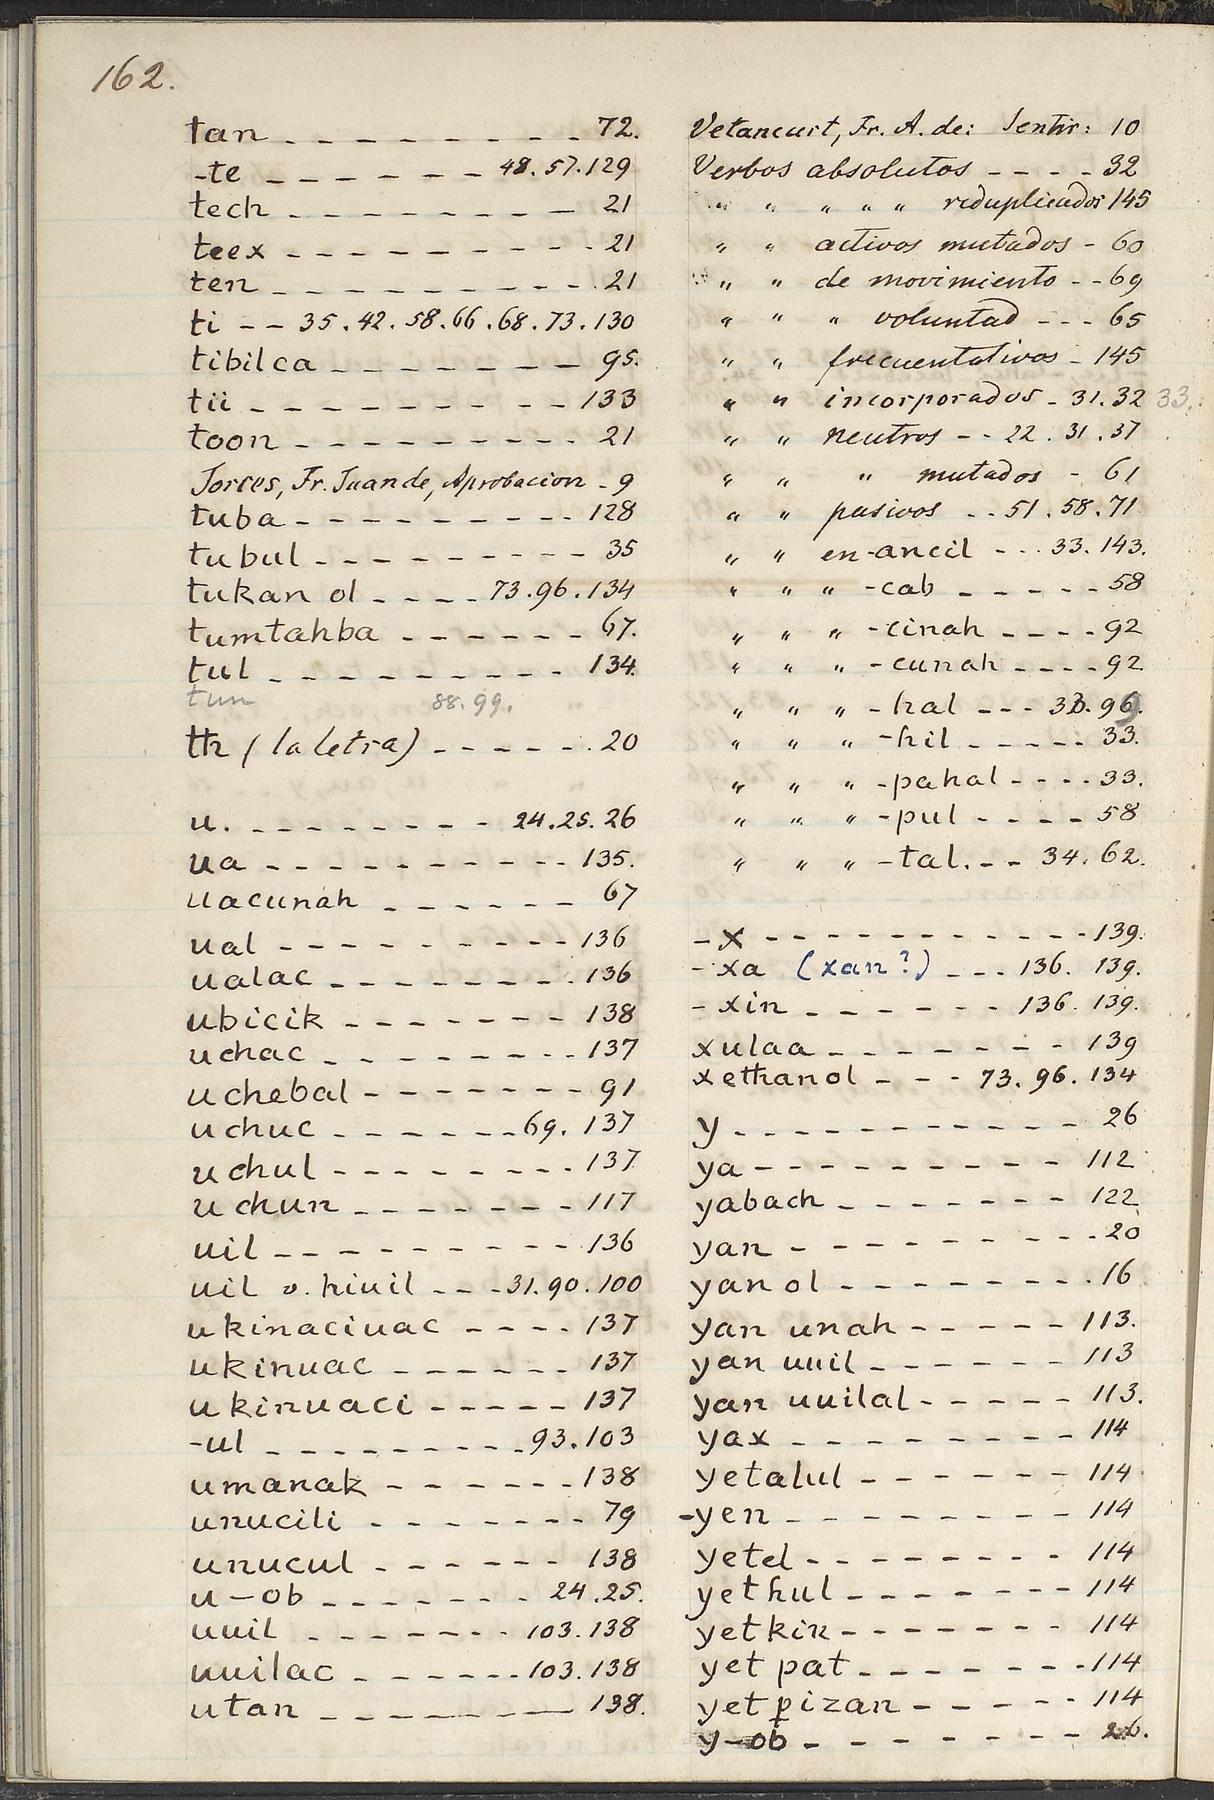 162.
tan - - - - - - - - - 72.
-te - - - - - - 48. 57. 129
tech - - - - - - - - - 21
teex - - - - - - - - - 21
ten - - - - - - - - - - 21
ti - - 35. 42. 58. 66. 68. 73. 130
tibilca - - - - - - - 95.
tii - - - - - - - - - 133
toon - - - - - - - - - 21
Torres, Fr. Juan de, Aprobacion - 9
tuba - - - - - - - - - 128
tubul - - - - - - - - - 35
tukan ol - - - - 73. 96. 134
tumtahba - - - - - - 67.
tul - - - - - - - - - 134.
tun 88. 99.
th (la letra) - - - - - - 20
u. - - - - - - - - 24. 25. 26
ua - - - - - - - - - - 135.
uacunah - - - - - - 67
ual - - - - - - - - - 136
ualac - - - - - - - - 136
ubicik - - - - - - - 138
uchac - - - - - - - - 137
uchebal - - - - - - - 91
uchuc - - - - - - - 69. 137
uchul - - - - - - - - 137
uchun - - - - - - - 117
uil - - - - - - - - - 136
uil o. hiuil - - - 31. 90. 100
ukinaciuac - - - - 137
ukinuac - - - - - - 137
ukinuaci - - - - - 137
-ul - - - - - - - - - 93. 103
umanak - - - - - - 138
unucili - - - - - - - 79
unucul - - - - - - 138
u-ob - - - - - - - 24. 25.
uuil - - - - - - - 103. 138
uuilac - - - - - - 103. 138
utan - - - - - - - - 138.
Vetancurt, Fr. A. de: Sentir: 10
Verbos absolutos - - - - 32
" " " " " reduplicados 145
" " activos mutados - 60
" " de movimiento - - 69
" " " voluntad - - - 65
" " frecuentativos - 145
" " incorporados - 31. 32 33.
" " neutros - - 22. 31. 37
" " " mutados - 61
" " pasivos - - 51. 58. 71
" " en -ancil - - - 33. 143.
" " " -cab - - - - - 58
" " " -cinah - - - - 92
" " " -cunah - - - - 92
" " " -hal - - - 33. 96.
" " " -hil - - - - - 33.
" " " -pahal - - - - 33.
" " " -pul - - - - 58
" " " -tal. - - 34. 62.
-x - - - - - - - - - - - 139.
-xa (xan?) - - - 136. 139.
-xin - - - - - - 136. 139.
xulaa - - - - - - - 139
xethanol - - - 73. 96. 134
y - - - - - - - - - - - 26
ya - - - - - - - - - 112
yabach - - - - - - - 122
yan - - - - - - - - - 20
yan ol - - - - - - - - 16
yan unah - - - - - 113.
yan uuil - - - - - - 113
yan uuilal - - - - - 113.
yax - - - - - - - - 114
yetalul - - - - - - 114
-yen - - - - - - - - 114
yetel - - - - - - - - 114
yethul - - - - - - - 114
yetkin - - - - - - - 114
yet pat - - - - - - - 114
yet pizan - - - - - 114
y-ob - - - - - - - - 26.